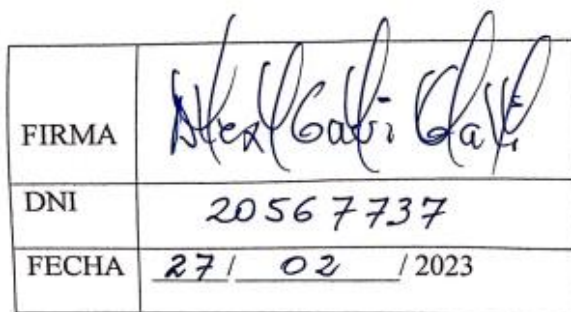 FIRMA
DNI 20567737
FECHA 27 / 02 / 2023